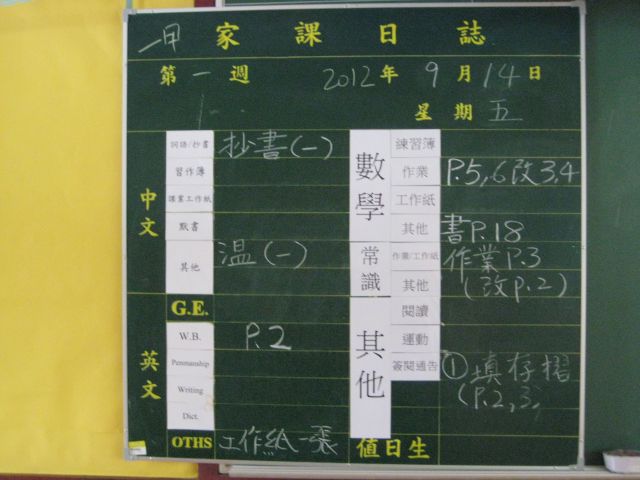 一甲 家課日誌
第一週 2012年9月14日
星期五
中文
詞語/抄書 抄書(一)
習作簿
課業工作紙
默書
其他 温(一)
G.E.
英文
W.B. P.2
Penmanship
Writing
Dict.
OTHS 工作紙一張
數學
練習簿
作業 P.5,6改3,4
工作紙
其他 書P.18
常識
作業/工作紙 作業P.3
其他 (改P.2)
其他
閱讀
運動
簽閱通告 ①填存摺
(P.2,3,
值日生